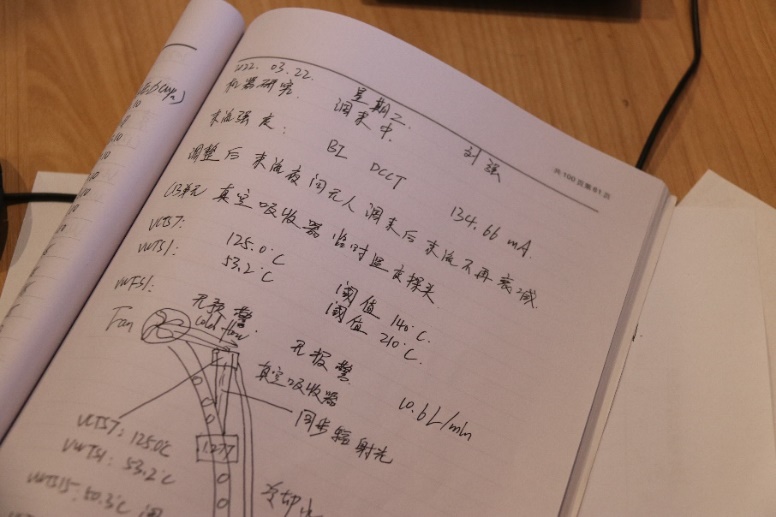 2022. 03.22. 星期二 刘强
共 100 页第 81 页
机器研究. 调束中.
束流强度: BI DCCT 134.66 mA.
调整后 束流夜间无人调束后束流不再衰减.
真空吸收器 临时监交探头.
VCTS7: 125.0℃ 阈值 140℃.
VWTS1: 53.2℃ 阈值 210℃.
VWFS1: 无报警. 无报警 10.6L/min
Fan
真空吸收器
同步辐射光
1.27T
VCTS7: 125.0℃
VWTS1: 53.2℃
VWTS15: 50.3℃
冷却